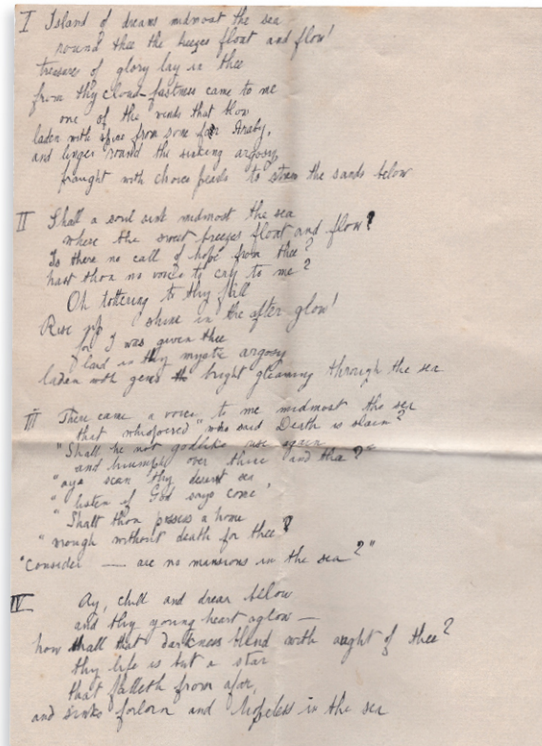 I Island of dreams midmost the sea
round thee the breezes float and flow!
treasures of glory lay in thee
from thy cloud-fastness came to me
one of the winds that blow
laden with spice from some far Araby,
and linger round the sinking argosy
fraught with choice pearls to strew the sands below
II Shall a soul sink midmost the sea
where the sweet breezes float and flow?
Is there no call of hope from thee?
hast thou no voice to cry to me?
Oh tottering to thy fall
Rise up, shine in the after glow!
for I was given thee
I laid in thy mystic argosy
laden with gems bright gleaming through the sea
III There came a voice to me midmost the sea
that whispered "who said Death is slain?
"Shall he not godlike rise again
and triumph over thine and thee?"
"aye scan thy desert sea
"listen if God says come"
"Shalt thou possess a home
"enough without death for thee?
"Consider — are no mansions in the sea?"
IV Ay, chill and drear below
and thy young heart aglow —
how shall that darkness blend with aught of thee?
thy life is but a star
that falleth from afar,
and sinks forlorn and hopeless in the sea